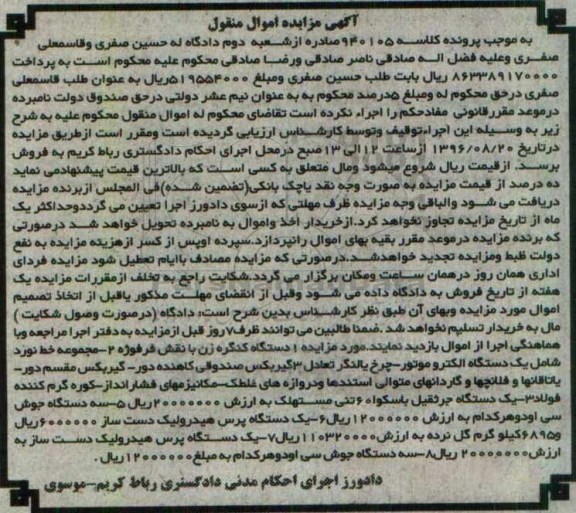 آگهی مزایده اموال منقول
به موجب پرونده کلاسه ۹۴۰۱۰۵ صادره از شعبه دوم دادگاه له حسین صفری و قاسمعلی
صفری وعلیه فضل اله صادقی ناصر صادقی ورضا صادقی محکوم علیه محکوم است به پرداخت
۸۶۳۳۸۹۱۷۰۰۰۰ ریال بابت طلب حسین صفری ومبلغ ۵۱۹۵۵۴۰۰۰ریال به عنوان طلب قاسمعلی
صفری درحق محکوم له ومبلغ ۵درصد محکوم به به عنوان نیم عشر دولتی درحق صندوق دولت نامبرده
درموعد مقررقانونی مفادحکم را اجراء نکرده است تقاضای محکوم له اموال منقول محکوم علیه به شرح
زیر به وسیله این اجراءتوقیف وتوسط کارشناس ارزیابی گردیده است ومقرر است ازطریق مزایده
درتاریخ ۱۳۹۶/۰۸/۲۰ ازساعت ۱۲ الی ۱۳ صبح درمحل اجرای احکام دادگستری رباط کریم به فروش
برسد. ازقیمت ریال شروع میشود ومال متعلق به کسی است که بالاترین قیمت پیشنهادمی نماید
ده درصد از قیمت مزایده به صورت وجه نقد یاچک بانکی(تضمین شده)فی المجلس ازبرنده مزایده
دریافت می شود والباقی وجه مزایده ظرف مهلتی که ازسوی دادورز اجرا تعیین می گرددوحداکثر یک
ماه از تاریخ مزایده تجاوز نخواهد کرد.ازخریدار اخذ واموال به نامبرده تحویل خواهد شد درصورتی
که برنده مزایده درموعد مقرر بقیه بهای اموال رانپردازد.سپرده اوپس از کسر ازهزینه مزایده به نفع
دولت ظبط ومزایده تجدید خواهدشد.درصورتی که مزایده مصادف باایام تعطیل شود مزایده فردای
اداری همان روز درهمان ساعت ومکان برگزار می گردد.شکایت راجع به تخلف ازمقررات مزایده یک
هفته از تاریخ فروش به دادگاه داده می شود وقبل از انقضای مهلت مذکور یاقبل از اتخاذ تصمیم
اموال مورد مزایده وبهای آن طبق نظر کارشناس بدین شرح است؛ دادگاه (درصورت وصول شکایت)
مال به خریدار تسلیم نخواهد شد.ضمنا طالبین می توانند ظرف۷روز قبل ازمزایده به دفتر اجرا مراجعه وبا
هماهنگی اجرا از اموال بازدید نمایند.مورد مزایده ۱دستگاه کنگره زن با نقش فرفوژه ۲-مجموعه خط نورد
شامل یک دستگاه الکترو موتور-چرخ بالنگر تعادل ۳گیربکس صندوقی کاهنده دور- گیربکس مقسم دور-
یاتاقانها و فلانچها و گاردانهای متوالی استندها ودروازه های غلطک-مکانیزمهای فشارانداز-کوره گرم کننده
فولاد۳-یک دستگاه جرثقیل باسکواه۶تنی مستهلک به ارزش ۲۰۰۰۰۰۰۰۰ریال ۵-سه دستگاه جوش
سی اودوهرکدام به ارزش ۱۲۰۰۰۰۰۰ریال۶-یک دستگاه پرس هیدرولیک دست ساز ۶۰۰۰۰۰۰۰ریال
و۶۸۹۵کیلو گرم گل نرده به ارزش۱۱۰۳۲۰۰۰۰ریال۷-یک دستگاه پرس هیدرولیک دست ساز به
ارزش ۲۰۰۰۰۰۰۰ ریال۸-سه دستگاه جوش سی اودوهرکدام به مبلغ۱۲۰۰۰۰۰۰ریال.
دادورز اجرای احکام مدنی دادگستری رباط کریم-موسوی